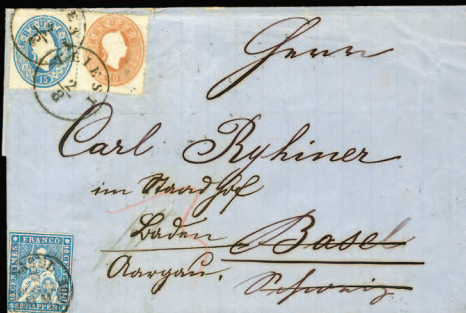 TRIEST
2/8
15
10
Herrn
Carl Ryhiner
im Staadhof
Baden Basel
Aargau. Schweiz
FRANCO
10 RAPPEN